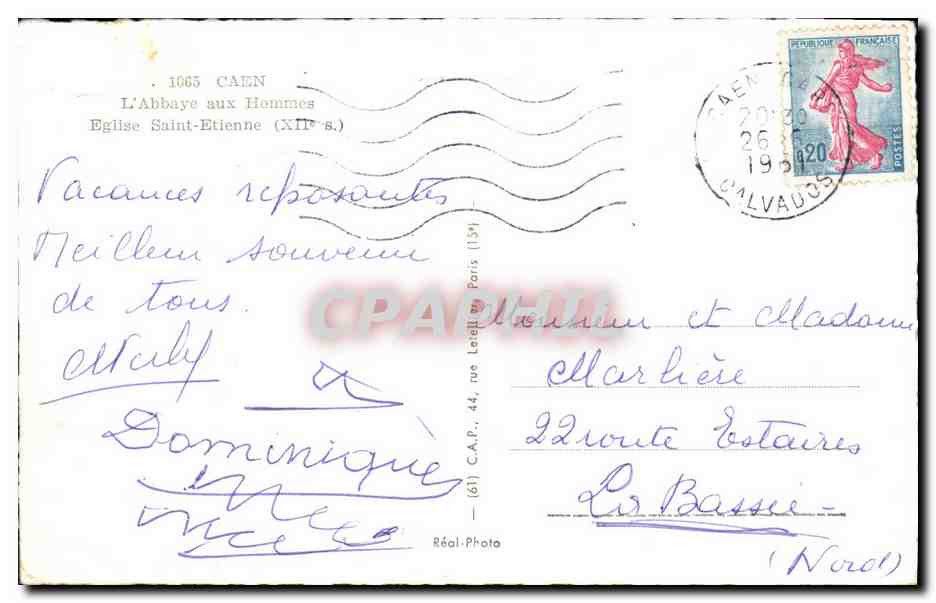 1065 CAEN
L'Abbaye aux Hommes
Eglise Saint-Etienne (XIIe s.)
Vacances reposantes
Meilleur souvenir
de tous.
Dominique
(61) C.A.P., 44, rue Letellier, Paris (15e)
Réal-Photo
CPAPHIL
REPUBLIQUE FRANÇAISE
0,20
POSTES
CAEN
20 30
26
CALVADOS
Monsieur et Madame
Marlière
22 route Estaires
La Bassée
(Nord)